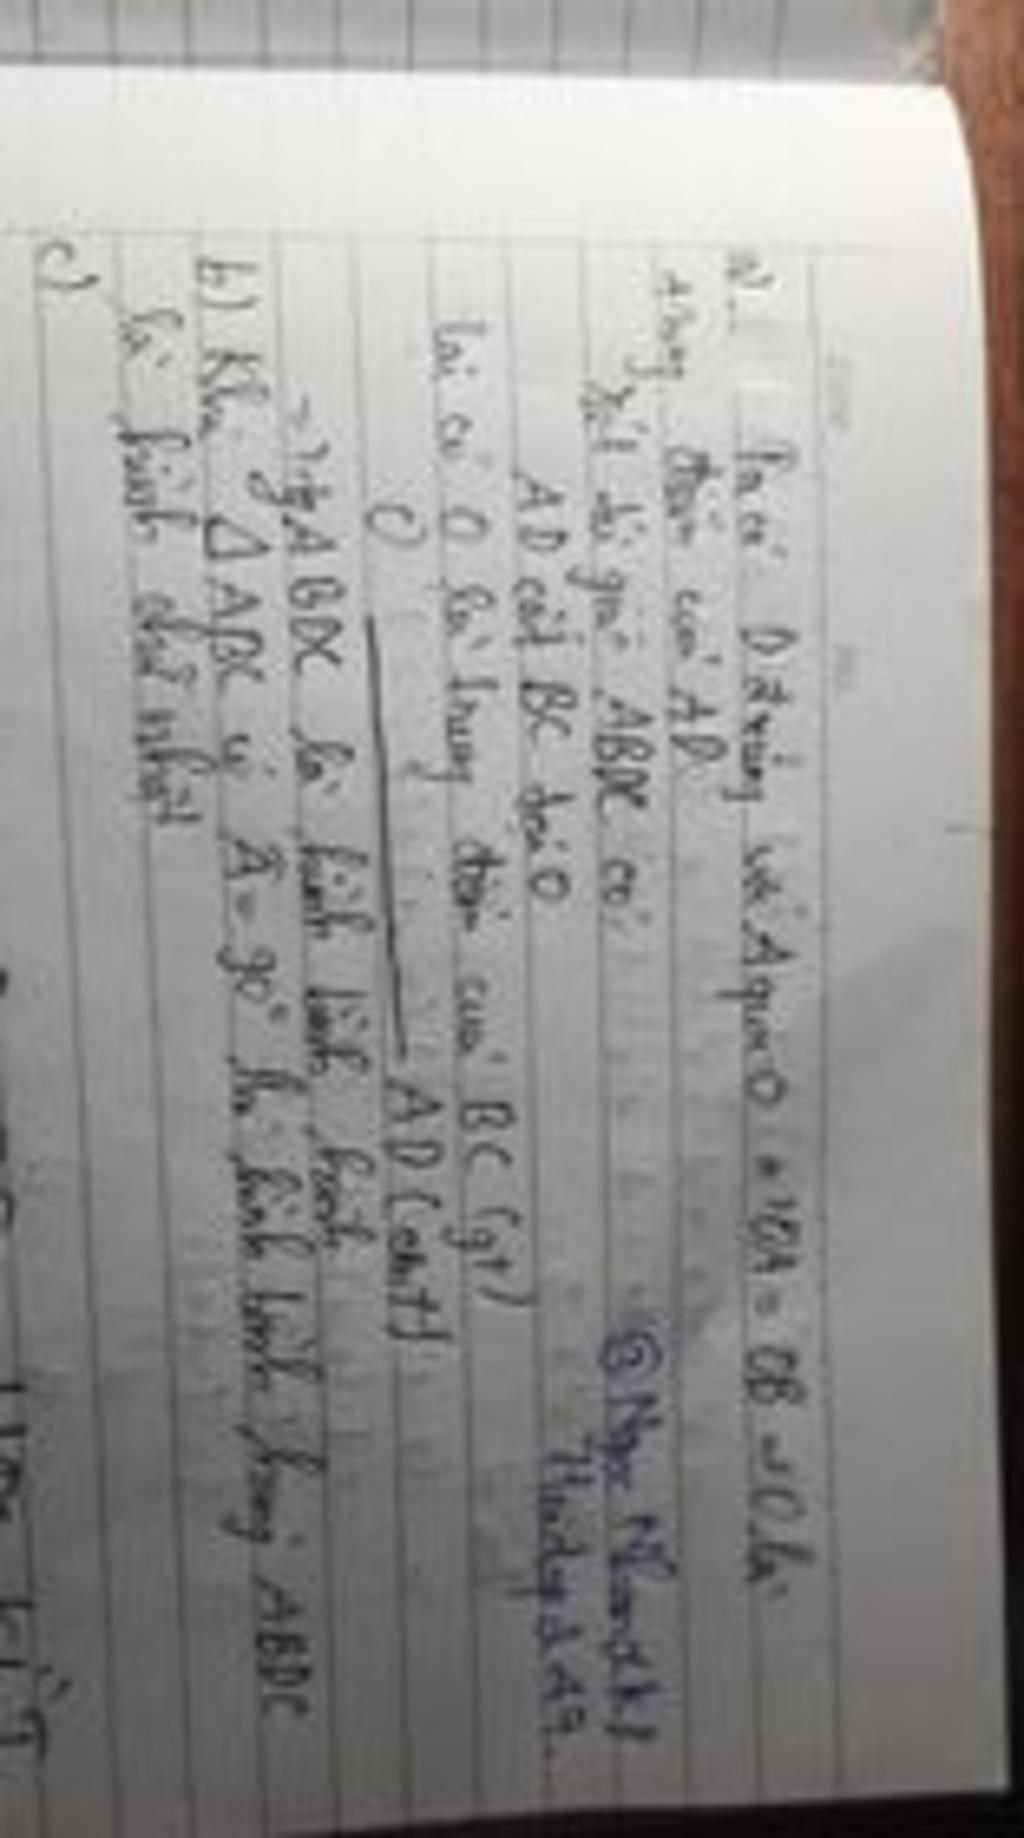 a) Ta có: D đ xứng với A qua O => OA = OB => O là
trung điểm của AD
Xét tứ giác ABDC có:
AD cắt BC tại O
lại có O là trung điểm của BC (gt)
O AD (cmt)
=> tg ABDC là hình bình hành
b) Khi Δ ABC có Â = 90° là hình bình hành ABDC
là hình chữ nhật
c)
@ Ngọc